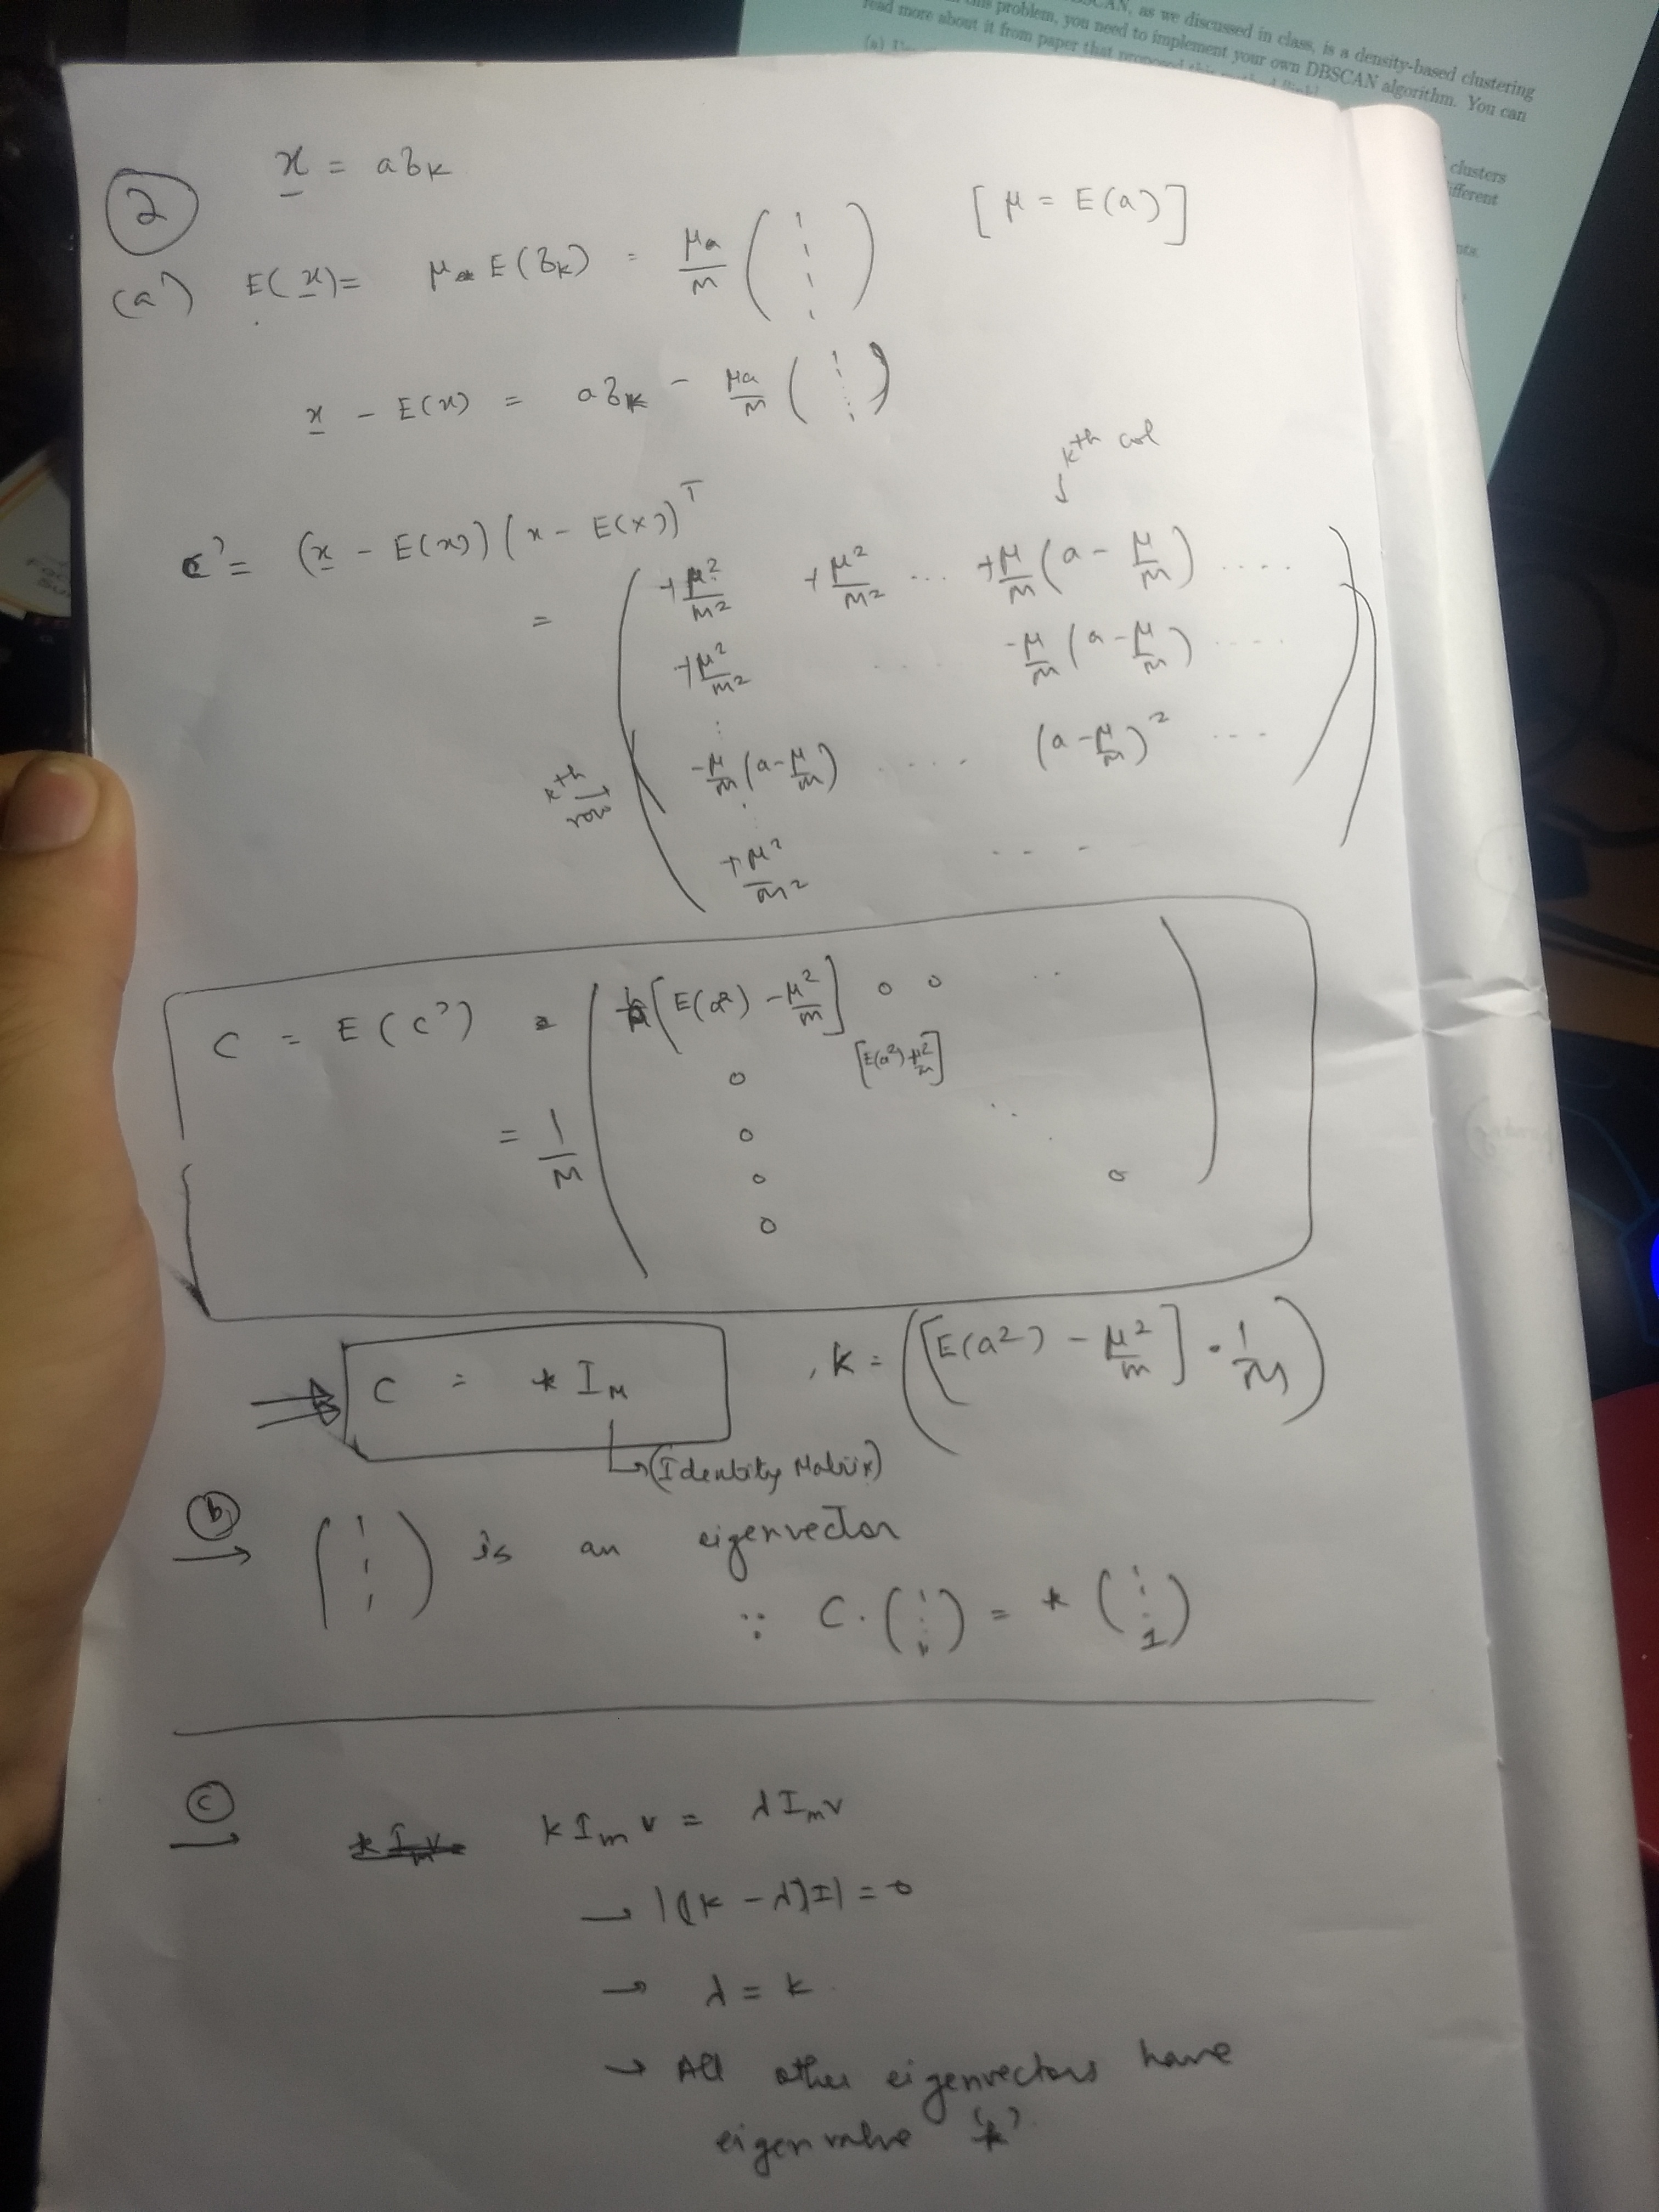 SCAN, as we discussed in class, is a density-based clustering
this problem, you need to implement your own DBSCAN algorithm. You can
read more about it from paper that proposed this
clusters
ifferent
② x = aδk
(a) E(x) = μ E(δk) = μa/m (1 1 1 1) [μ = E(a)]
x - E(x) = aδk - μa/m (1 1)
kth col
c' = (x - E(x))(x - E(x))^T
= ( +μ²/m² +μ²/m² ... +μ/m (a - μ/m) ....
+μ²/m² .... -μ/m (a - μ/m) ....
-μ/m (a - μ/m) .... (a - μ/m)² ...
kth row
+μ²/m² - - - )
C = E(c') = ( [E(a²) - μ²/m] 0 0 ..
0 [E(a²) + μ²/m]
= 1/M 0
0 0
0 )
C = k I_M , k = ([E(a²) - μ²/m] · 1/M)
(Identity Matrix)
ⓑ (1 1 1) is an eigenvector
∵ C·(1 1) = k (1 : 1)
ⓒ k I_m v = λ I_m v
→ |(k - λ)I| = 0
→ λ = k
→ All other eigenvectors have
eigenvalue 'k'